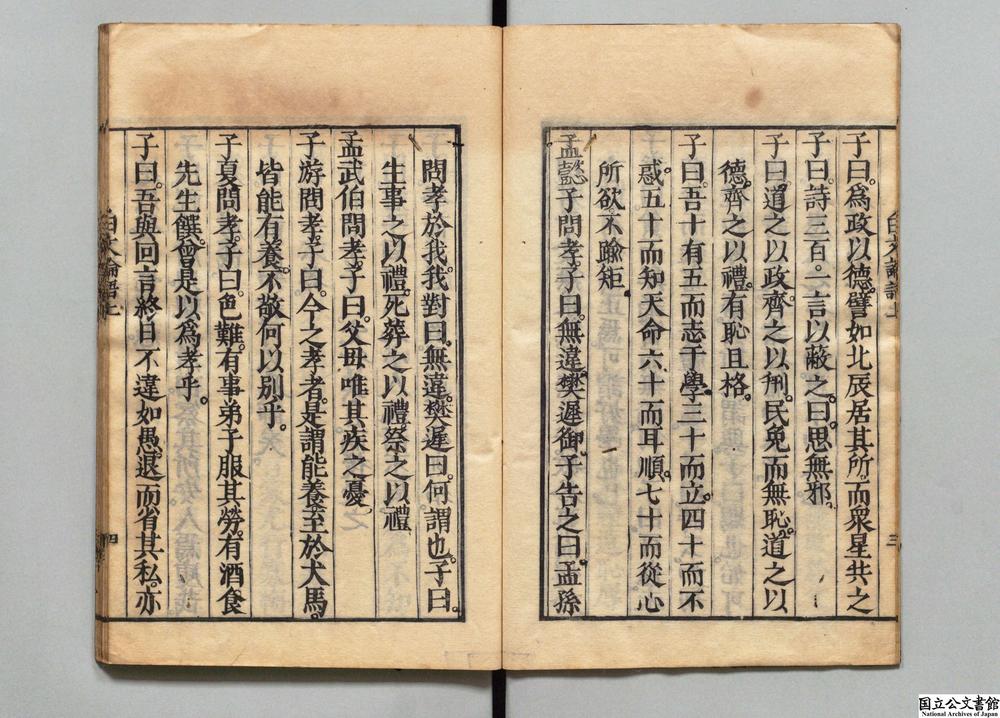 子曰。爲政以德。譬如北辰居其所。而衆星共之
子曰。詩三百。一言以蔽之。曰。思無邪。
子曰。道之以政。齊之以刑。民免而無恥。道之以
德。齊之以禮。有恥且格。
子曰。吾十有五而志于學。三十而立。四十而不
惑。五十而知天命。六十而耳順。七十而從心
所欲不踰矩。
孟懿子問孝。子曰。無違。樊遲御。子告之曰。孟孫
三
問孝於我。我對曰。無違。樊遲曰。何謂也。子曰。
生事之以禮。死葬之以禮。祭之以禮
孟武伯問孝。子曰。父母唯其疾之憂。
子游問孝。子曰。今之孝者。是謂能養。至於犬馬。
皆能有養。不敬何以別乎。
子夏問孝。子曰。色難。有事弟子服其勞。有酒食
先生饌。曾是以爲孝乎。
子曰。吾與回言終日。不違如愚。退而省其私。亦
白文論語上
四
国立公文書館
National Archives of Japan